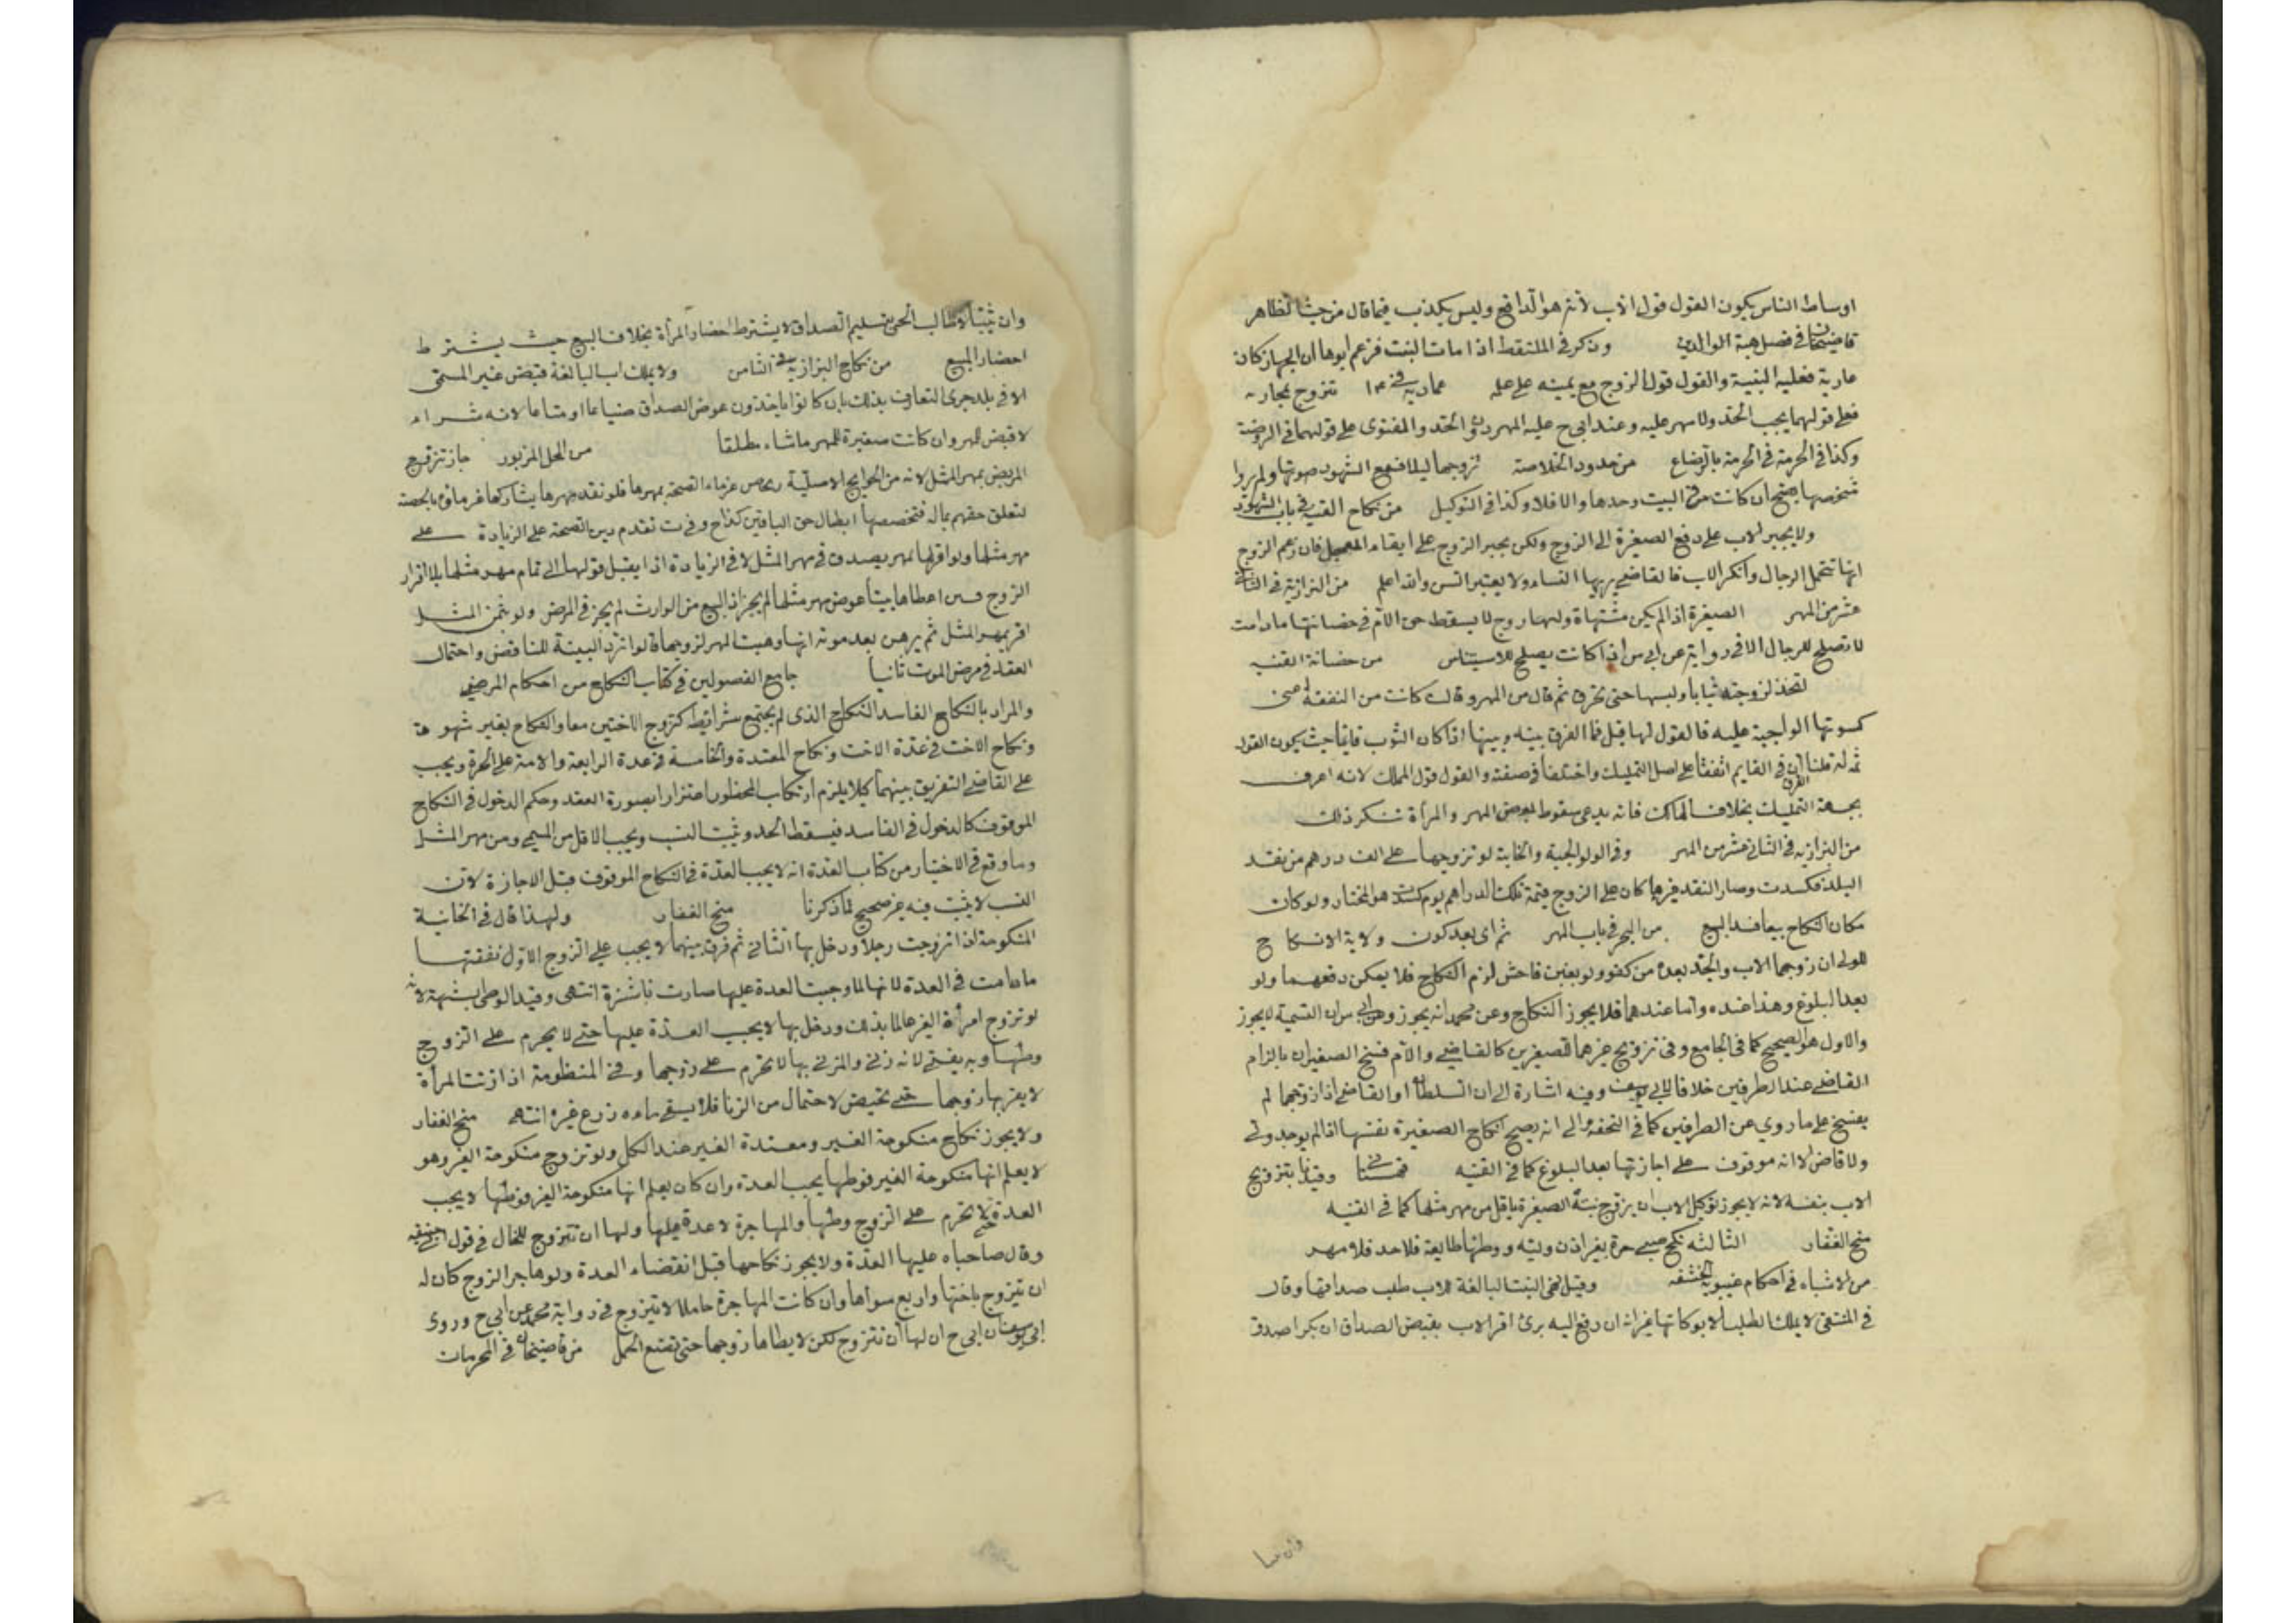 اوساط الناس يكون القول قول الاب لانه هو الدافع وليس يكذب فيما قال من حيث الظاهر
قاضيخان في فصل هبة الوالدين وذكر في الملتقط اذا ماتت البنت فزعم ابوها ان الجهاز كان
عارية فعليه البينة والقول قول الزوج مع يمينه على علمه عمادية في ١٣ تزوج بمحارمه
فعلى قولهما يجب الحد ولا مهر عليه وعند ابي ح عليه المهر دون الحد والفتوى على قولهما في الروضة
وكذا في الحرمة بالرضاع من حدود الخلاصة تزوجها ليلا فسمع الشهود صوتها ولم يروا
شخصها يصح ان كانت في البيت وحدها والا فلا وكذا في التوكيل من نكاح القنيه في باب الشهود
ولا يجبر الاب على دفع الصغيرة الى الزوج ولكن يجبر الزوج على ايفاء المعجل فان زعم الزوج
انها تتحمل الرجال وانكر الاب فالقاضي يريها النساء ولا يعتبر السن والله اعلم من البزازية في الثاني
عشر من المهر الصغيرة اذا لم يكن مشتهاة ولها زوج لا يسقط حق الام في حضانتها ما دامت
لا تصلح للرجال الا في رواية عن ابي س اذا كانت يصلح للاستيناس من حضانة القنيه
اتخذ لزوجته ثيابا ولبسها حتى تخرق ثم قال من المهر وقالت كانت من النفقة اعنى
كسوتها الواجبة عليه فالقول لها قيل فما الفرق بينه وبينها اذا كان الثوب قايما حيث يكون القول
ثمه له قلنا الفرق ان في القايم اتفقا على اصل التمليك واختلفا في صفته والقول قول المملك لانه اعرف
بجهة التمليك بخلاف الهالك فانه يدعى سقوط بعض المهر والمرأة تنكر ذلك
من البزازيه في الثاني عشر من المهر وفي الولوالجية والخانية لو تزوجها على الف درهم من نقد
البلد فكسدت وصار النقد غيرها كان على الزوج قيمة تلك الدراهم يوم كسدت هو المختار ولو كان
مكان النكاح بيعا فسد البيع من البحر في باب المهر ثم اي بعد كون ولاية الانكاح
للولي ان زوجها الاب والجد بعده من كفو ولو بغبن فاحش لزم النكاح فلا يمكن دفعهما ولو
بعد البلوغ وهذا عنده واما عندهما فلا يجوز النكاح وعن محمد انه يجوز وعن ابي س ان التسمية لا يجوز
والاول هو الصحيح كما في الجامع وفي تزويج غيرهما للصغيرين كالقاضي والام فسخ الصغيران بالزام
القاضي عند الطرفين خلافا لابي يوسف وفيه اشارة الى ان السلطان او القاضي اذا زوجها لم
يفسخ على ما روي عن الطرفين كما في التحفة والى انه يصح انكاح الصغيرة نفسها اذا لم يوجد ولي
ولا قاض لا انه موقوف على اجازتها بعد البلوغ كما في القنيه وقيدنا بتزويج
الاب بنفسه لانه لا يجوز توكيل الاب ان يزوج بنته الصغيرة باقل من مهر مثلها كما في القنيه
منح الغفار الثالثه نكح صبي حرة بغير اذن وليه ووطئها طايعة فلا حد فلا مهر
من الاشباه في احكام غيبوبة الحشفه وقيل في البنت البالغة للاب طلب صداقها وقال
في المنتقى لا يملك الطلب الا بوكالتها غير انه ان دفع اليه برئ اقر الاب بقبض الصداق ان بكرا صدق
وان ثيبا
وان ثيبا لا طالب الحمى بتسليم الصداق لا يشترط احضار المرأة بخلاف البيع حيث يشترط
احضار المبيع من نكاح البزازيه في الثامن ولا يملك اب البالغة قبض غير المسمى
الا في بلد جرى التعارف بذلك بان كانوا ياخذون عوض الصداق ضياعا او متاعا لانه شراء
لا قبض المهر وان كانت صغيرة للمهر ما شاء مطلقا من المحل المزبور جاز تزوج
المريض بمهر المثل لانه من الحوايج الاصلية غرماء الصحة بمهرها فلو نقد مهرها يشاركها غرماؤه بالحصة
لتعلق حقهم بماله فتخصيصها ابطال حق الباقين تقدم دين الصحة على الزيادة على
مهر مثلها ولو اقر لها بمهر يصدق في مهر المثل لا في الزيادة اذا يقبل قولها الى تمام مهر مثلها بلا اقرار
الزوج اعطاها بيتا عوض مهر مثلها لم يجز اذ البيع من الوارث لم يجز في المرض ولو بثمن المثل
اقر بمهر المثل ثم برهن بعد موته انها وهبت المهر لزوجها قالوا ترد البينة للتناقض واحتمال
العقد في مرض الموت ثانيا جامع الفصولين في كتاب النكاح من احكام المرضى
والمراد بالنكاح الفاسد النكاح الذى لم يجتمع شرائطه كتزوج الاختين معا والنكاح بغير شهود
ونكاح الاخت في عدة الاخت ونكاح المعتدة والخامسة في عدة الرابعة والامة على الحرة ويجب
على القاضي التفريق بينهما كيلا يلزم ارتكاب المحظور اغترارا بصورة العقد وحكم الدخول في النكاح
الموقوف كالدخول في الفاسد فيسقط الحد ويثبت النسب ويجب الاقل من المسمى ومن مهر المثل
وما وقع في الاختيار من كتاب العدة انه لا يجب العدة في النكاح الموقوف قبل الاجازة لان
النسب لا يثبت فيه غير صحيح لما ذكرنا منح الغفار ولهذا قال في الخانية
المنكوحة اذا تزوجت رجلا ودخل بها الثاني ثم فرق بينهما لا يجب على الزوج الاول نفقتها
ما دامت في العدة لانها لما وجبت العدة عليها صارت ناشزة انتهى وقيد الوطئ بشبهة لانه
لو تزوج امرأة الغير عالما بذلك ودخل بها لا يجب العدة عليها حتى لا يحرم على الزوج
وطئها وبه يفتى لانه زنى والمزني بها لا تحرم على زوجها وفي المنظومة اذا زنت المرأة
لا يقربها زوجها حتى تحيض لاحتمال من الزنا فلا يسقى ماءه زرع غيره انتهى منح الغفار
ولا يجوز نكاح منكوحة الغير ومعتدة الغير عند الكل ولو تزوج منكوحة الغير وهو
لا يعلم انها منكوحة الغير فوطئها يجب العدة وان كان يعلم انها منكوحة الغير فوطئها لا يجب
العدة حتى لا تحرم على الزوج وطئها والمهاجرة لا عدة عليها ولها ان تتزوج للحال في قول ابي حنيفه
وقال صاحباه عليها العدة ولا يجوز نكاحها قبل انقضاء العدة ولو هاجر الزوج كان له
ان يتزوج باختها واربع سواها وان كانت المهاجرة حاملا لا تتزوج في رواية محمد عن ابي ح وروى
ابي يوسف عن ابي ح ان لها ان تتزوج لكن لا يطاها زوجها حتى تضع الحمل من قاضيخان في المحرمات